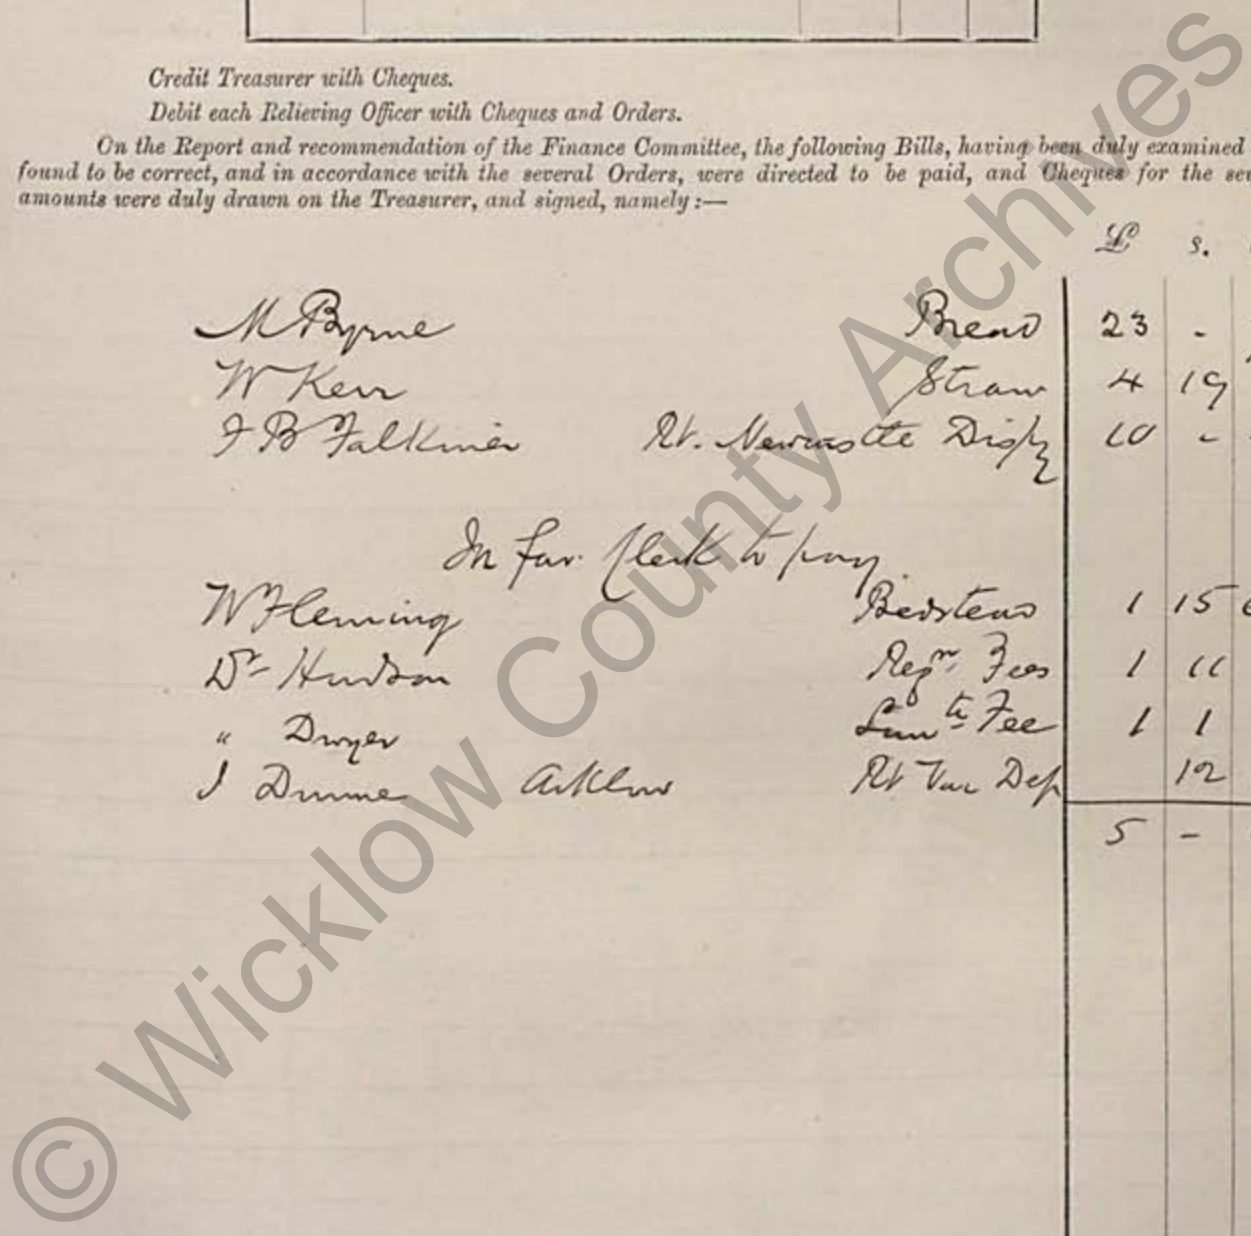 Credit Treasurer with Cheques.
Debit each Relieving Officer with Cheques and Orders.
On the Report and recommendation of the Finance Committee, the following Bills, having been duly examined
found to be correct, and in accordance with the several Orders, were directed to be paid, and Cheques for the
amounts were duly drawn on the Treasurer, and signed, namely:—
£ s.
M Byrne Bread 23 -
W Kerr Straw 4 19
F B Falkiner Rt. Newcastle Dispy 10 -
In fav. Clerk to pay
W Fleming Bedstead 1 15
Dr Hudson Regn. Fees 1 11
" Dwyer Lunte Fee 1 1
J Dunne Arklow Rt Vac Dep 12
5 -
© Wicklow County Archives